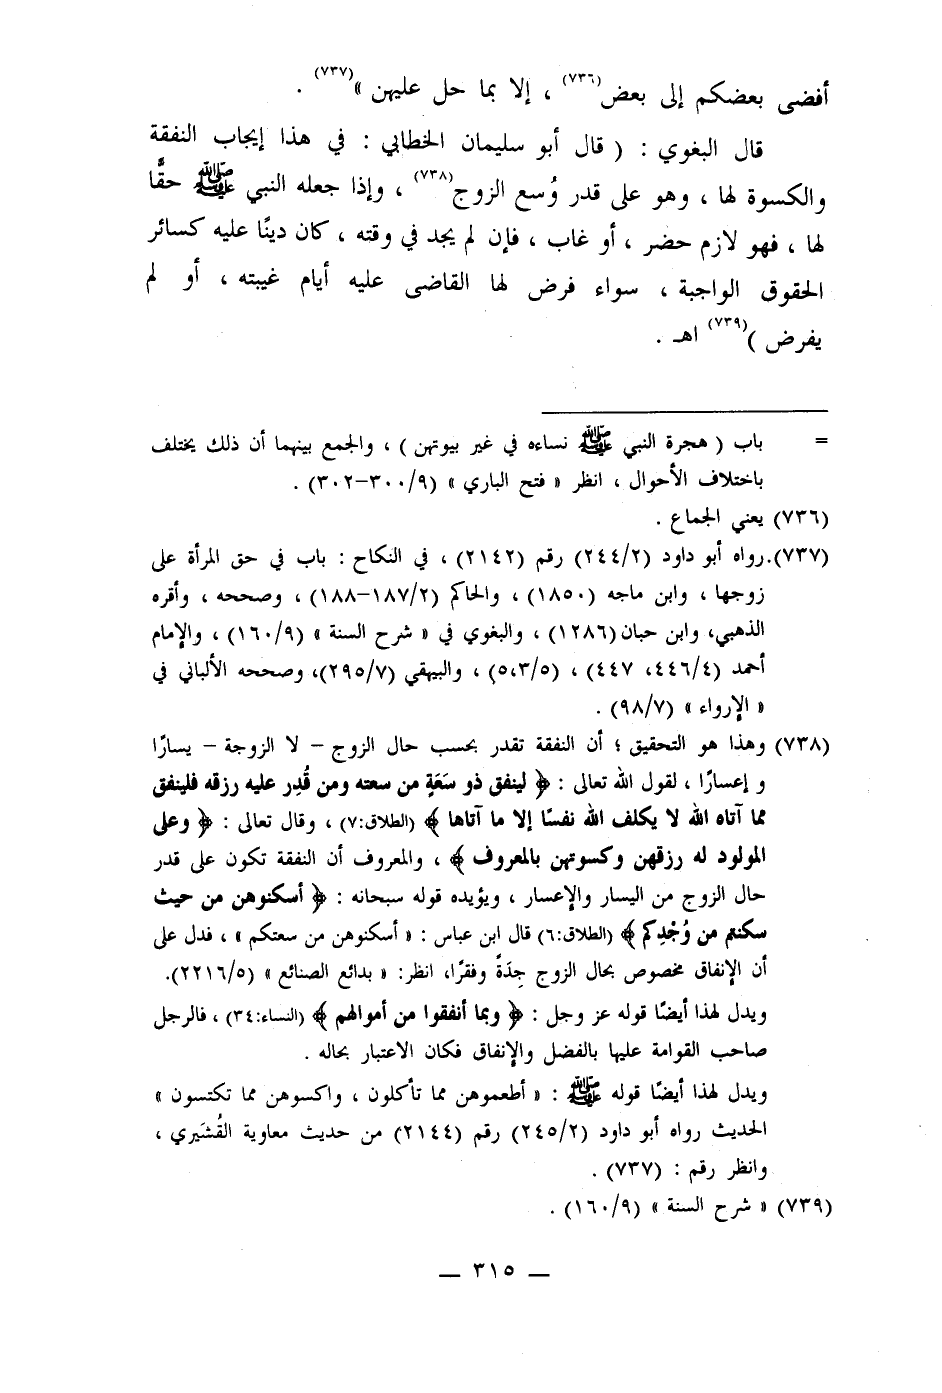 أفضى بعضكم إلى بعض(٧٣٦) ، إلا بما حل عليهن »(٧٣٧) .
قال البغوي : ( قال أبو سليمان الخطابي : في هذا إيجاب النفقة
والكسوة لها ، وهو على قدر وُسع الزوج(٧٣٨) ، وإذا جعله النبي ﷺ حقًّا
لها ، فهو لازم حضر ، أو غاب ، فإن لم يجد في وقته ، كان دينًا عليه كسائر
الحقوق الواجبة ، سواء فرض لها القاضى عليه أيام غيبته ، أو لم
يفرض )(٧٣٩) اهـ .
= باب ( هجرة النبي ﷺ نساءه في غير بيوتهن ) ، والجمع بينهما أن ذلك يختلف
باختلاف الأحوال ، انظر « فتح الباري » (٩/٣٠٠-٣٠٢) .
(٧٣٦) يعني الجماع .
(٧٣٧).رواه أبو داود (٢/٢٤٤) رقم (٢١٤٢) ، في النكاح : باب في حق المرأة على
زوجها ، وابن ماجه (١٨٥٠) ، والحاكم (٢/١٨٧-١٨٨) ، وصححه ، وأقره
الذهبي، وابن حبان(١٢٨٦) ، والبغوي في « شرح السنة » (٩/١٦٠) ، والإمام
أحمد (٤/٤٤٦، ٤٤٧) ، (٥/٣،٥) ، والبيهقي (٧/٢٩٥)، وصححه الألباني في
« الإرواء » (٧/٩٨) .
(٧٣٨) وهذا هو التحقيق ؛ أن النفقة تقدر بحسب حال الزوج – لا الزوجة – يسارًا
و إعسارًا ، لقول الله تعالى : ﴿ لينفق ذو سَعَةٍ من سعته ومن قُدِر عليه رزقه فلينفق
مما آتاه الله لا يكلف الله نفسًا إلا ما آتاها ﴾ (الطلاق:٧) ، وقال تعالى : ﴿ وعلى
المولود له رزقهن وكسوتهن بالمعروف ﴾ ، والمعروف أن النفقة تكون على قدر
حال الزوج من اليسار والإعسار ، ويؤيده قوله سبحانه : ﴿ أسكنوهن من حيث
سكنتم من وُجْدِكم ﴾ (الطلاق:٦) قال ابن عباس : « أسكنوهن من سعتكم » ، فدل على
أن الإنفاق مخصوص بحال الزوج جِدَةً وفقرًا، انظر: « بدائع الصنائع » (٥/٢٢١٦).
ويدل لهذا أيضًا قوله عز وجل : ﴿ وبما أنفقوا من أموالهم ﴾ (النساء:٣٤) ، فالرجل
صاحب القوامة عليها بالفضل والإنفاق فكان الاعتبار بحاله .
ويدل لهذا أيضًا قوله ﷺ : « أطعموهن مما تأكلون ، واكسوهن مما تكتسون »
الحديث رواه أبو داود (٢/٢٤٥) رقم (٢١٤٤) من حديث معاوية القُشَيري ،
وانظر رقم : (٧٣٧) .
(٧٣٩) « شرح السنة » (٩/١٦٠) .
— ٣١٥ —